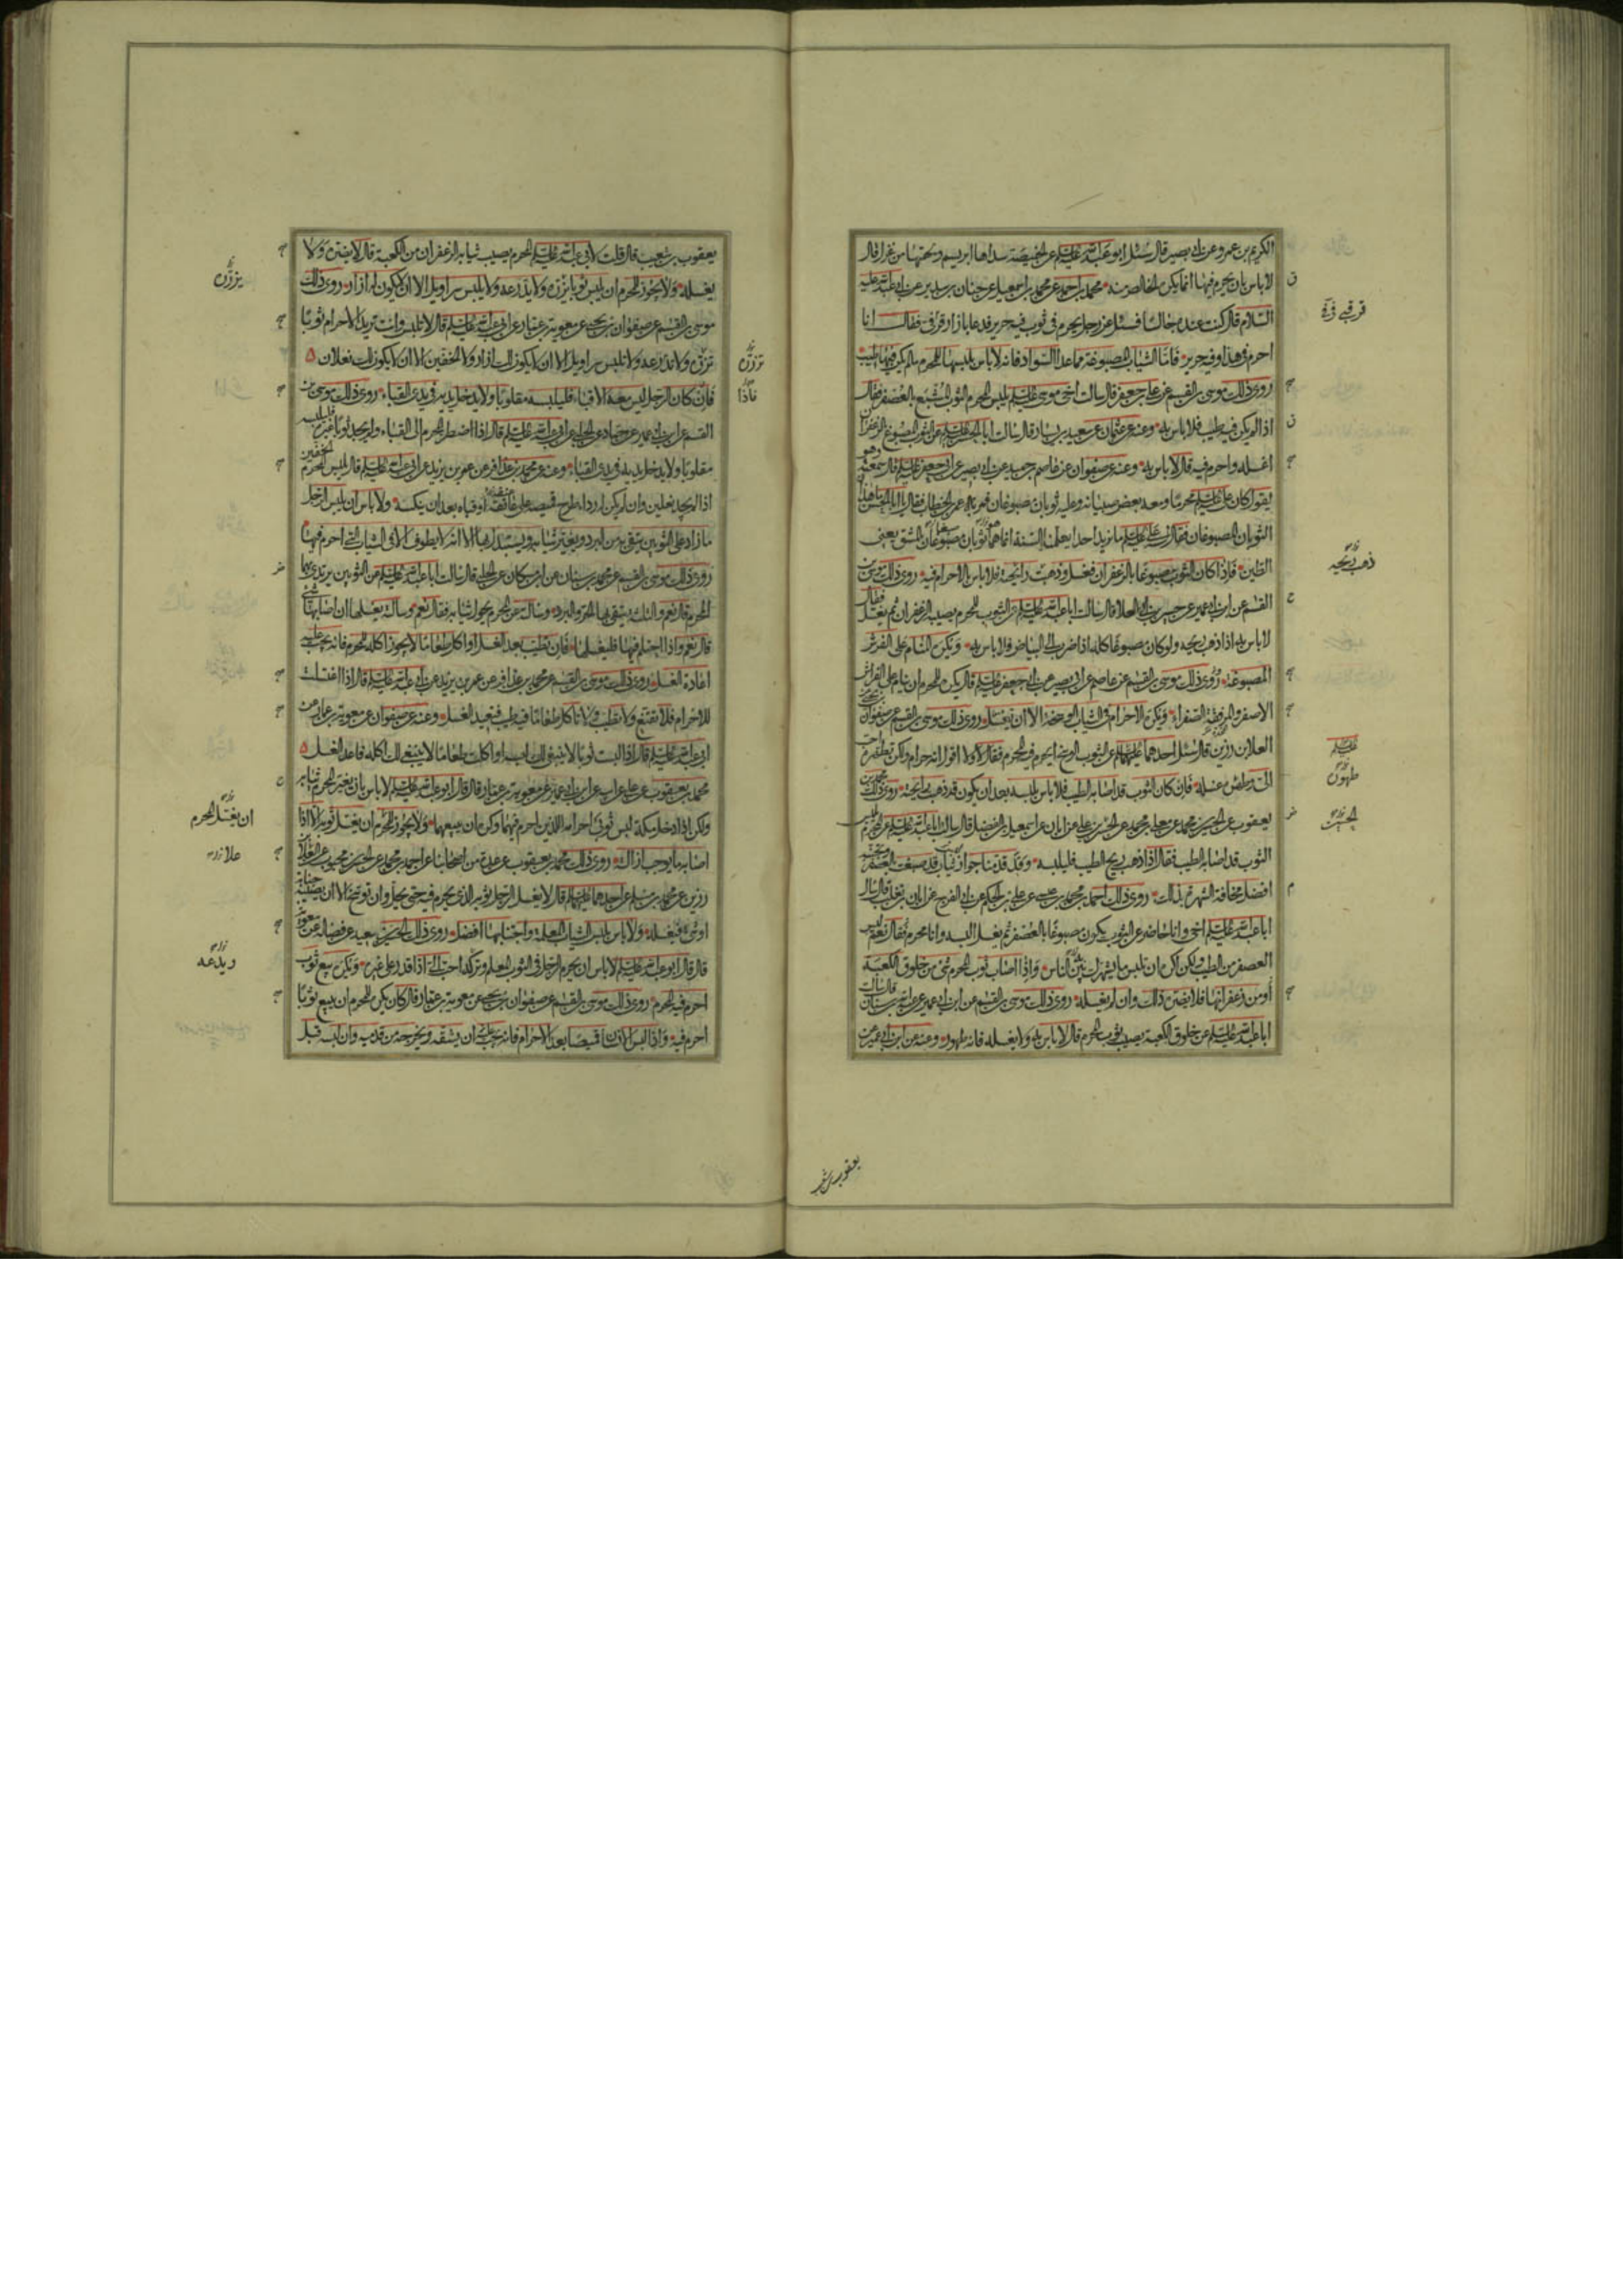 الكريم بن عمرو عن ابى بصير قال سئل ابو عبد الله عليه السلم عن الخميصة سداها ابريسم ولحمتها من غزل قال
لا باس بان يحرم فيها انما يكره الخالص منه محمد بن احمد عن محمد بن اسمعيل عن حنان بن سدير عن ابى عبد الله عليه
السلام قال كنت عنده جالسا فسئل عن رجل يحرم فى ثوب فيه حرير فدعا بازار قرقبى فقال انا
احرم فى هذا وفيه حرير فاما الثياب المصبوغة مما عدا السواد فانه لا باس بلبسها للمحرم ما لم يكن فيها طيب
روى ذلك موسى بن القسم عن على بن جعفر قال سالت اخى موسى عليه السلم يلبس المحرم الثوب المشبع بالعصفر فقال
اذا لم يكن فيه طيب فلا باس به وعنه عن عثمان عن سعيد بن يسار قال سالت ابا الحسن عليه السلم عن الثوب المصبوغ بالزعفران
اغسله واحرم فيه قال لا باس به وعنه عن صفوان عن عاصم بن حميد عن ابى بصير عن ابى جعفر عليه السلم قال سمعته وهو
يقول كان على عليه السلم محرما ومعه بعض صبيانه وعليه ثوبان مصبوغان فمر به عمر بن الخطاب فقال يا ابا الحسن ما هذا
الثوبان المصبوغان فقال على عليه السلم ما نريد احدا يعلمنا السنة انما هما ثوبان صبغا بالمشق يعنى
الطين فاذا كان الثوب مصبوغا بالزعفران فغسل وذهبت رائحته فلا باس بالاحرام فيه روى ذلك موسى بن
القسم عن ابن ابى عمير عن حسين بن ابى العلا قال سالت ابا عبد الله عليه السلم عن الثوب للمحرم يصيبه الزعفران ثم يغسل فقال
لا باس به اذا ذهب ريحه ولو كان مصبوغا كله اذا ضرب الى البياض فلا باس به ويكره المنام على الفرش
المصبوغة روى ذلك موسى بن القسم عن عاصم عن ابى بصير عن ابى جعفر عليه السلم قال يكره للمحرم ان ينام على الفراش
الاصفر والمرفقة الصفراء ويكره الاحرام فى الثياب الوسخة الا ان تغسل روى ذلك موسى بن القسم عن صفوان
العلا بن رزين قال سئل احدهما عليهما السلم عن الثوب الوسخ ايحرم فيه المحرم فقال لا ولا اقول انه حرام ولكن تطهيره احب
الى وطهره غسله فان كان الثوب قد اصابه الطيب فلا باس بلبسه بعد ان يكون قد ذهب رائحته روى ذلك محمد بن
يعقوب عن الحسين بن محمد عن معلى بن محمد عن الحسن بن على عن ابان عن اسمعيل بن الفضل قال سالت ابا عبد الله عليه السلم عن المحرم يلبس
الثوب قد اصابه الطيب فقال اذا ذهب ريح الطيب فليلبسه وقد قدمنا جواز لبس ثياب قد صبغت بالعصفر وتجنبه
افضل مخافة الشهرة بذلك روى ذلك احمد بن محمد بن عيسى عن على بن الحكم عن ابى الفرج عن ابان بن تغلب قال سال
ابا عبد الله عليه السلم اخى وانا حاضر عن الثوب يكون مصبوغا بالعصفر ثم يغسل البسه وانا محرم فقال نعم ليس
العصفر من الطيب ولكن اكره ان تلبس ما يشهرك بين الناس واذا اصاب ثوب المحرم شئ من خلوق الكعبة
او من زعفرانها فلا يضره ذلك وان لم يغسله روى ذلك موسى بن القسم عن ابن ابى عمير عن عبد الله بن سنان قال سالت
ابا عبد الله عليه السلم عن خلوق الكعبة يصيب ثوب المحرم قال لا باس به ولا يغسله فانه طهور وعنه عن ابن ابى عمير عن
ذهب ريحه
طهوره
الحسن
يعقوب بن شعيب
يعقوب بن شعيب قال قلت لابى عبد الله عليه السلم المحرم يصيب ثيابه الزعفران من الكعبة قال لا يضره ولا
يغسله ولا يجوز للمحرم ان يلبس ثوبا يزره ولا يدرعه ولا يلبس سراويل الا ان لا يكون له ازار روى ذلك
موسى بن القسم عن صفوان بن يحيى عن معوية بن عمار عن ابى عبد الله عليه السلم قال لا تلبس وانت تريد الاحرام ثوبا
تزره ولا تدرعه ولا تلبس سراويل الا ان لا يكون لك ازار ولا الخفين الا ان لا يكون لك نعلان
فان كان الرجل ليس معه الا قباء فليلبسه مقلوبا ولا يدخل يديه فى يدى القباء روى ذلك موسى بن
القسم عن ابن ابى عمير عن حماد عن الحلبى عن ابى عبد الله عليه السلم قال اذا اضطر المحرم الى القباء ولم يجد ثوبا غيره فليلبسه
مقلوبا ولا يدخل يديه فى يدى القباء وعنه عن محمد بن عذافر عن عمر بن يزيد عن ابى عبد الله عليه السلم قال يلبس المحرم الخفين
اذا لم يجد نعلين وان لم يكن له رداء طرح قميصه على عاتقه او قباه بعد ان ينكسه ولا باس ان يلبس الرجل
ما زاد على الثوبين يتقى بهن البرد ويغير ثيابه ويستبدل بها الا انه لا يطوف الا فى الثياب التى احرم فيها
روى ذلك موسى بن القسم عن محمد بن سنان عن ابن مسكان عن الحلبى قال سالت ابا عبد الله عليه السلم عن الثوبين يرتدى بهما
المحرم قال نعم والثلثة يتقى بها الحر والبرد وسالته عن المحرم يحول ثيابه فقال نعم وسالته يغسلها ان اصابها شئ
قال نعم واذا احتلم فيها فليغسلها فان تطيب بعد الغسل او اكل طعاما لا يجوز اكله للمحرم فانه يجب عليه
اعادة الغسل روى ذلك موسى بن القسم عن محمد بن عذافر عن عمر بن يزيد عن ابى عبد الله عليه السلم قال اذا اغتسلت
للاحرام فلا تقنع ولا تطيب ولا تاكل طعاما فيه طيب فتعيد الغسل وعنه عن صفوان عن معوية بن عمار عن
ابى عبد الله عليه السلم قال اذا لبست ثوبا لا ينبغى لك لبسه او اكلت طعاما لا ينبغى لك اكله فاعد الغسل
محمد بن يعقوب عن على عن ابيه عن ابن ابى عمير عن معوية بن عمار قال قال ابو عبد الله عليه السلم لا باس بان يغير المحرم ثيابه
ولكن اذا دخل مكة لبس ثوبى احرامه اللذين احرم فيهما وكره ان يبيعهما ولا يجوز للمحرم ان يغسل ثوبه الا اذا
اصابه ما يوجب ازالته روى ذلك محمد بن يعقوب عن عدة من اصحابنا عن احمد بن محمد عن الحسن بن محبوب عن العلا بن
رزين عن محمد بن مسلم عن احدهما عليهما السلم قال لا يغسل الرجل ثوبه الذى يحرم فيه حتى يحل وان توسخ الا ان يصيبه جنابة
او شئ فيغسله ولا باس بلبس الثياب المعلمة واجتنابها افضل روى ذلك الحسين بن سعيد عن فضالة عن معوية
قال قال ابو عبد الله عليه السلم لا باس ان يحرم الرجل فى الثوب المعلم وتركه احب الى اذا قدر على غيره ويكره بيع ثوب
احرم فيه المحرم روى ذلك موسى بن القسم عن صفوان بن يحيى عن معوية بن عمار قال كان يكره للمحرم ان يبيع ثوبا
احرم فيه واذا لبس الانسان قميصا بعد الاحرام فانه يجب عليه ان يشقه ويخرجه من قدميه وان لبسه قبل
يزره
تزره
فاذا
ان يغسل المحرم